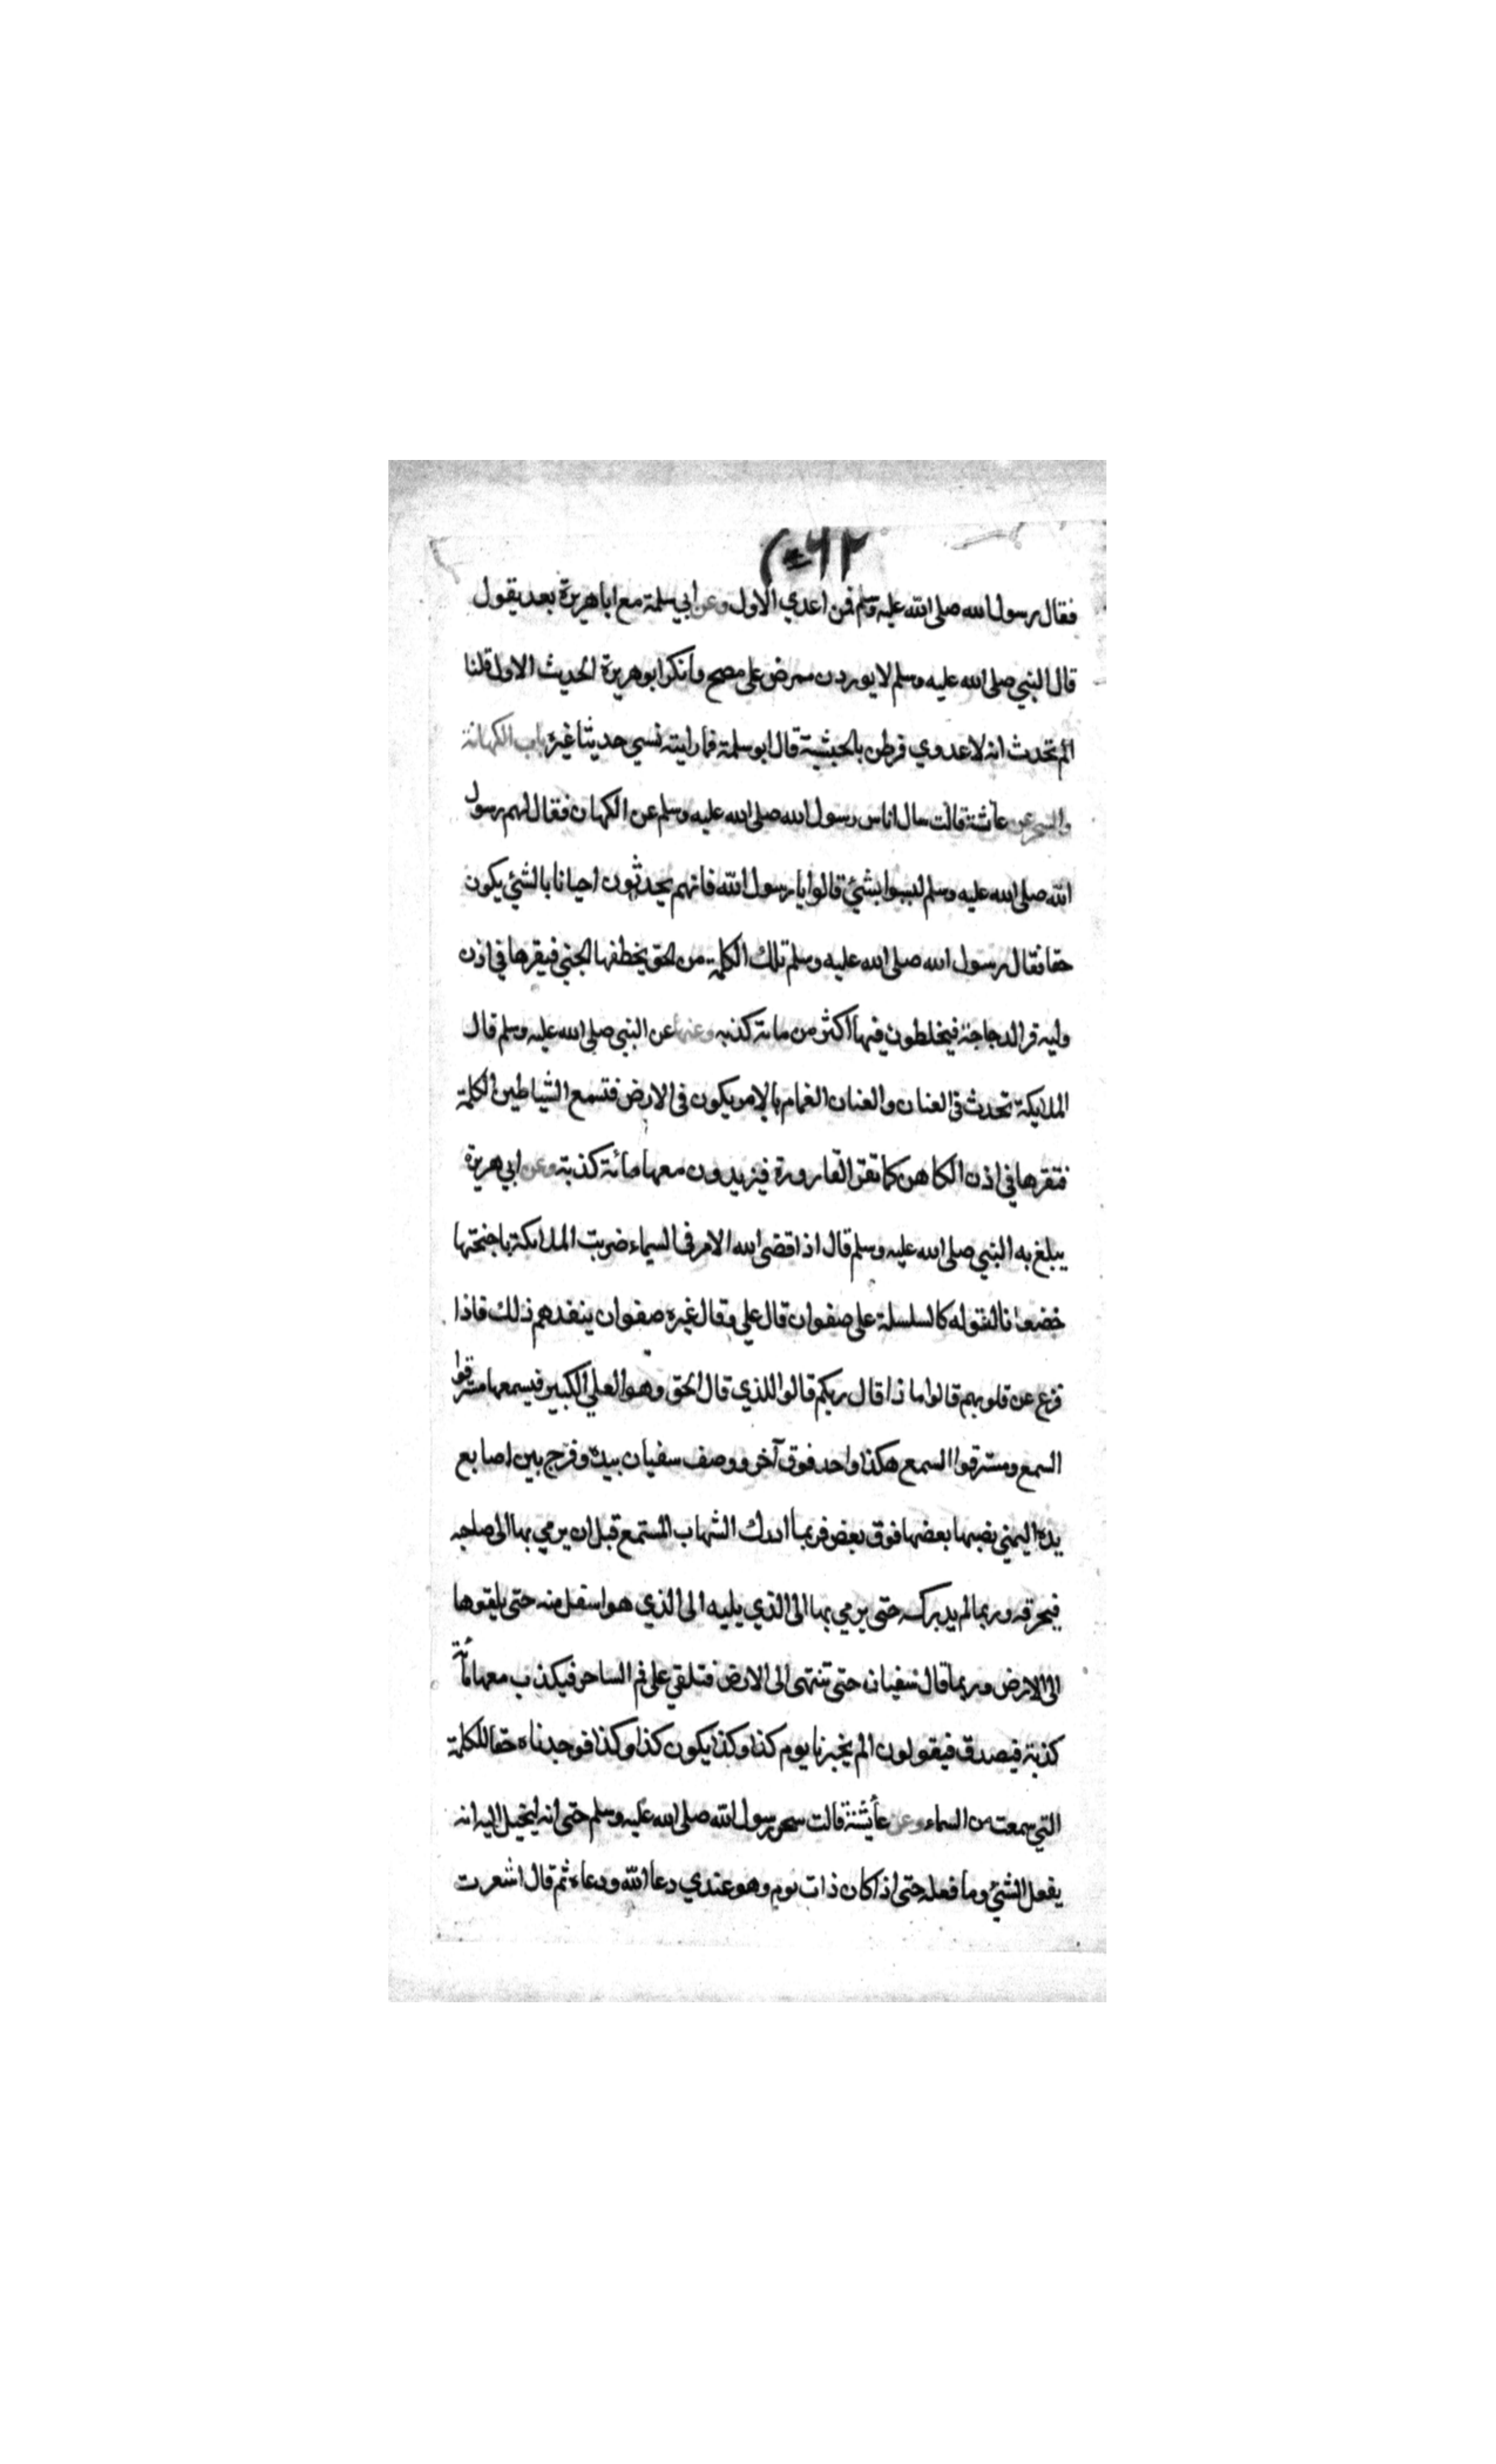 فقال رسول الله صلى الله عليه وسلم فمن اعدي الاول وعن ابي سلمة مع ابا هريرة بعد يقول
قال النبي صلى الله عليه وسلم لا يوردن ممرض على مصح وانكر ابو هريرة الحديث الاول قلنا
الم تحدث انه لا عدوي فرطن بالحبشية قال ابو سلمة فما رايته نسي حديثا غيره باب الكهانة
والسحر عن عائشة قالت سال اناس رسول الله صلى الله عليه وسلم عن الكهان فقال لهم رسول
الله صلى الله عليه وسلم ليسوا بشيئ قالوا يا رسول الله فانهم يحدثون احيانا بالشيئ يكون
حقا فقال رسول الله صلى الله عليه وسلم تلك الكلمة من الحق يخطفها الجني فيقرها في اذن
وليه قر الدجاجة فيخلطون فيها اكثر من مائة كذبه وعنها عن النبي صلى الله عليه وسلم قال
الملايكة تحدث في العنان والعنان الغمام بالامر يكون في الارض فتسمع الشياطين الكلمة
فتقرها في اذن الكاهن كما تقر القارورة فيزيدون معها مائة كذبة وعن ابي هريرة
يبلغ به النبي صلى الله عليه وسلم قال اذا قضى الله الامر في السماء ضربت الملائكة باجنحتها
خضعانا لقوله كالسلسلة على صفوان قال علي وقال غيره صفوان ينفذهم ذلك فاذا
فزع عن قلوبهم قالوا ما ذا قال ربكم قالوا للذي قال الحق وهو العلي الكبير فيسمعها مسترقوا
السمع ومسترقوا السمع هكذا واحد فوق آخر ووصف سفيان بيده وفرج بين اصابع
يده اليمني نصبها بعضها فوق بعض فربما ادرك الشهاب المستمع قبل ان يرمي بها الى صاحبه
فيحرقه وربما لم يدركه حتى يرمي بها الى الذي يليه الى الذي هو اسفل منه حتى يلقوها
الى الارض وربما قال سفيان حتى تنتهى الى الارض فتلقي على فم الساحر فيكذب معها مائة
كذبة فيصدق فيقولون الم يخبرنا يوم كذا وكذا يكون كذا وكذا فوجدناه حقا للكلمة
التي سمعت من السماء وعن عائشة قالت سحر رسول الله صلى الله عليه وسلم حتى انه ليخيل اليه انه
يفعل الشيئ وما فعله حتى اذا كان ذات يوم وهو عندي دعا الله ودعاه ثم قال اشعرت